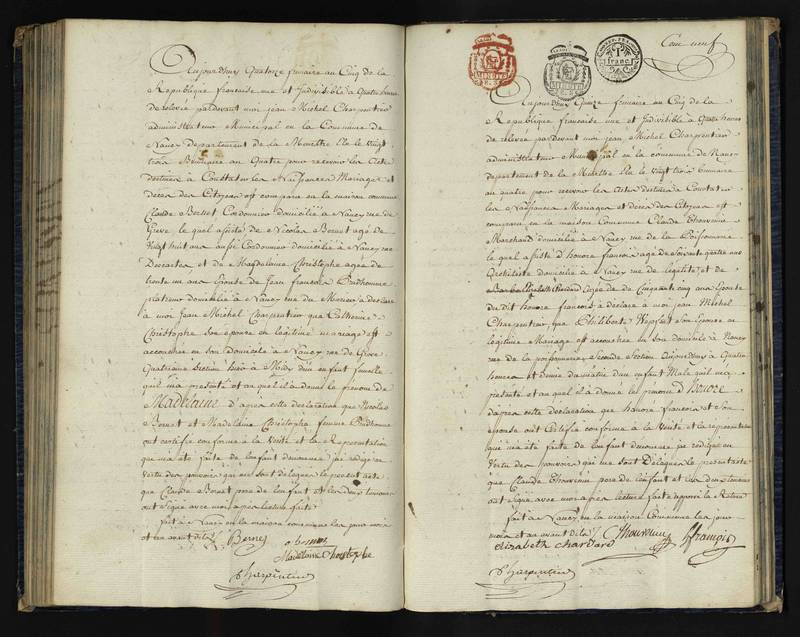 Aujourdhuy Quatorze frimaire an Cinq de la
Republique française une et Indivisible à Quatre heures
de relevée pardevant moi jean Michel Charpentier
administrateur Municipal en la Commune de
Nancy departement de la Meurthe Elu le vingt
trois Brumaire an Quatre pour recevoir les Actes
destinés à Constater les Naissances Mariages et
décès des Citoyens est comparu en la maison commune
Claude Bernet Cordonnier domicilié à Nancy rue de
Greve le quel assisté de Nicolas Bernet agé de
vingt huit ans aussi Cordonnier domicilié à Nancy rue
Descartes et de Magdelaine Christophe agée de
trente un ans Epouse de Jean francois Prudhomme
platrieur domicilié à Nancy rue du a déclaré
à moi Jean Michel Charpentier que Catherine
Christophe son epouse en légitime mariage est
accouchée en son domicile à Nancy rue de Greve
Quatrieme Section hier à Midy d'un enfant femelle
qu'il m'a présenté et au quel il a donné le prenome de
Madelaine d'après cette déclaration que Nicolas
Bernet et Madelaine Christophe femme Prudhomme
ont certifié conforme à la vérité et la Représentation
qui m'a été faite de l'enfant denommé j'ai rédigé en
vertu des pouvoirs qui me sont délégués le present acte
que Claude Bernet pere de l'enfant et les deux témoins
ont signé avec moi après lecture faite
fait à Nancy en la maison commune les jour mois
et an avant dits Bernet
Madelaine Christophe
Charpentier
Cent neuf
1 franc
Aujourdhuy Quinze frimaire an Cinq de la
Republique française une et Indivisible à Quatre heures
de relevée par devant moi jean Michel Charpentier
administrateur Municipal en la commune de Nancy
departement de la Meurthe Elu le vingt trois brumaire
an quatre pour recevoir les actes destinés à Constater
les Naissances Mariages et décès des Citoyens est
comparu en la maison Commune Claude Thouvenin
Marchand domicilié à Nancy rue de la Poissonnerie
le quel assisté d'honoré francois agé de soixante quatre ans
domicilié à Nancy rue de l'egalité et de
agée de Cinquante cinq ans Epouse
du dit honoré francois a déclaré à moi jean Michel
Charpentier que Philiberte son Epouse en
légitime Mariage est accouchée en son domicile à Nancy
rue de la poissonnerie seconde section aujourdhuy à Quatre
heures et demie du matin d'un enfant Male qu'il m'a
présenté et au quel il a donné le prenome d'honoré
d'après cette déclaration que honoré francois et son
épouse ont Certifié conforme à la vérité et la représentation
qui m'a été faite de l'enfant denommé j'ai rédigé en
vertu des pouvoirs qui me sont Délégués le présent acte
que Claude Thouvenin pere de l'enfant et les deux témoins
ont signé avec moi après lecture faite approuvé la Rature
fait à Nancy en la maison Commune les jour
mois et an avant dits Thouvenin h françois
elizabeth chardard
Charpentier